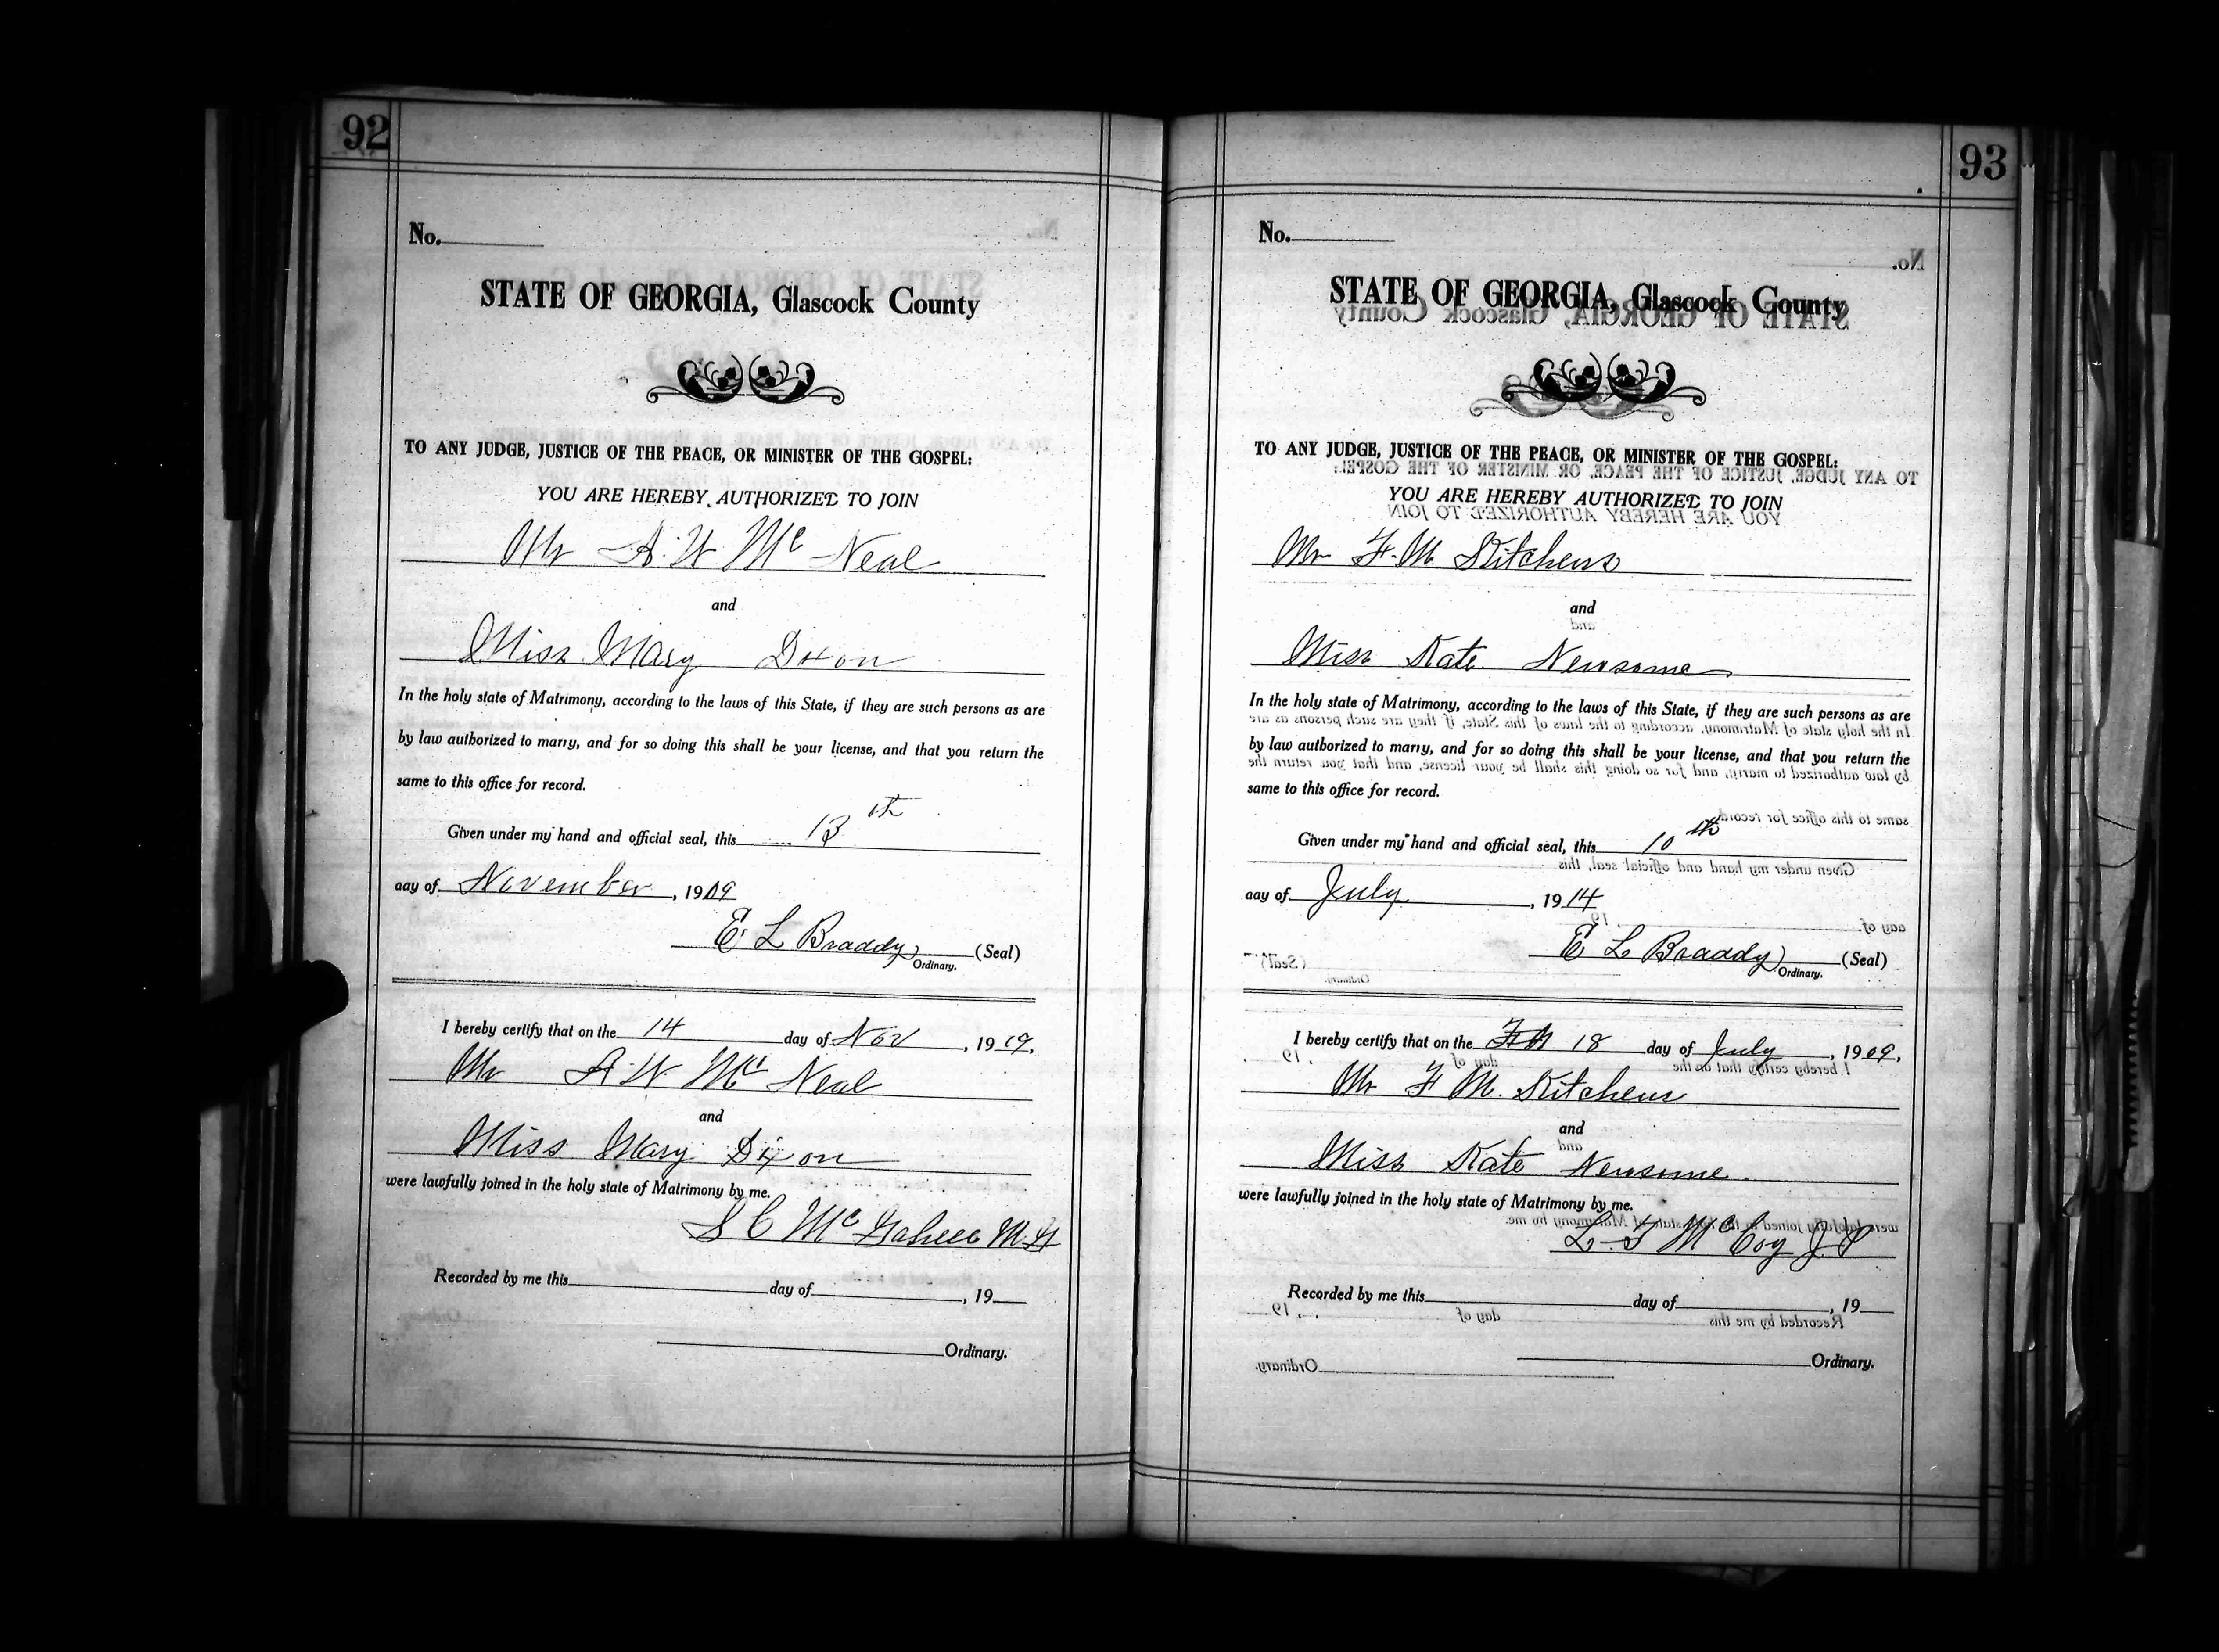 92
No.
STATE OF GEORGIA, Glascock County
TO ANY JUDGE, JUSTICE OF THE PEACE, OR MINISTER OF THE GOSPEL:
YOU ARE HEREBY AUTHORIZED TO JOIN
Mr A. W McNeal
and
Miss Mary Dixon
In the holy state of Matrimony, according to the laws of this State, if they are such persons as are
by law authorized to marry, and for so doing this shall be your license, and that you return the
same to this office for record.
Given under my hand and official seal, this 13th
day of November, 1909
E. L Braddy (Seal)
Ordinary.
I hereby certify that on the 14 day of Nov, 1909.
Mr A W McNeal
and
Miss Mary Dixon
were lawfully joined in the holy state of Matrimony by me.
S C M.G
Recorded by me this day of , 19
Ordinary.
93
No.
STATE OF GEORGIA, Glascock County
TO ANY JUDGE, JUSTICE OF THE PEACE, OR MINISTER OF THE GOSPEL:
YOU ARE HEREBY AUTHORIZED TO JOIN
Mr F. M. Kitchens
and
Miss Kate Newsome
In the holy state of Matrimony, according to the laws of this State, if they are such persons as are
by law authorized to marry, and for so doing this shall be your license, and that you return the
same to this office for record.
Given under my hand and official seal, this 10th
day of July, 1914
E L Braddy (Seal)
Ordinary.
I hereby certify that on the 18 day of July, 1909.
Mr F M. Kitchens
and
Miss Kate Newsome.
were lawfully joined in the holy state of Matrimony by me.
L. F McCoy J. P
Recorded by me this day of , 19
Ordinary.